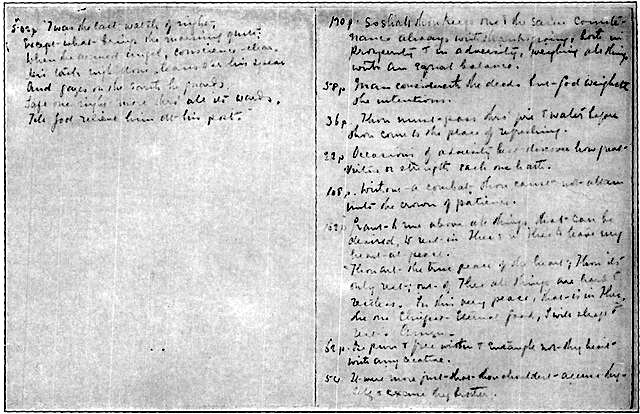 'Twas the last watch of night,
Except what brings the morning quite,
When the armed angel, conscience-clear,
His task nigh done, leans o'er his spear
And gazes on the earth he guards,
Safe one night more thro' all its wards,
Till God relieve him at his post.
170 p. So shalt thou keep one & the same counte-
nance always, with thanksgiving, both in
prosperity & in adversity, weighing all things
with an equal balance.
58 p. Man considereth the deeds but God weigheth
the intentions.
36 p. Thou must pass thro' fire & water before
thou come to the place of refreshing.
22 p. Occasions of adversity best discover how great
virtue or strength each one hath.
108 p. Without a combat thou canst not attain
unto the crown of patience.
Grant to me above all things that can be
desired, to rest in Thee & in Thee to have my
heart at peace.
Thou art the true peace of the heart; Thou its
only rest; out of Thee all things are hard &
restless. In this very peace, that is in Thee,
the one Chiefest Eternal Good, I will sleep &
rest. Amen.
Be pure & free within & entangle not thy heart
with any creature.
It were more just that thou shouldest accuse thy-
self & excuse thy brother.